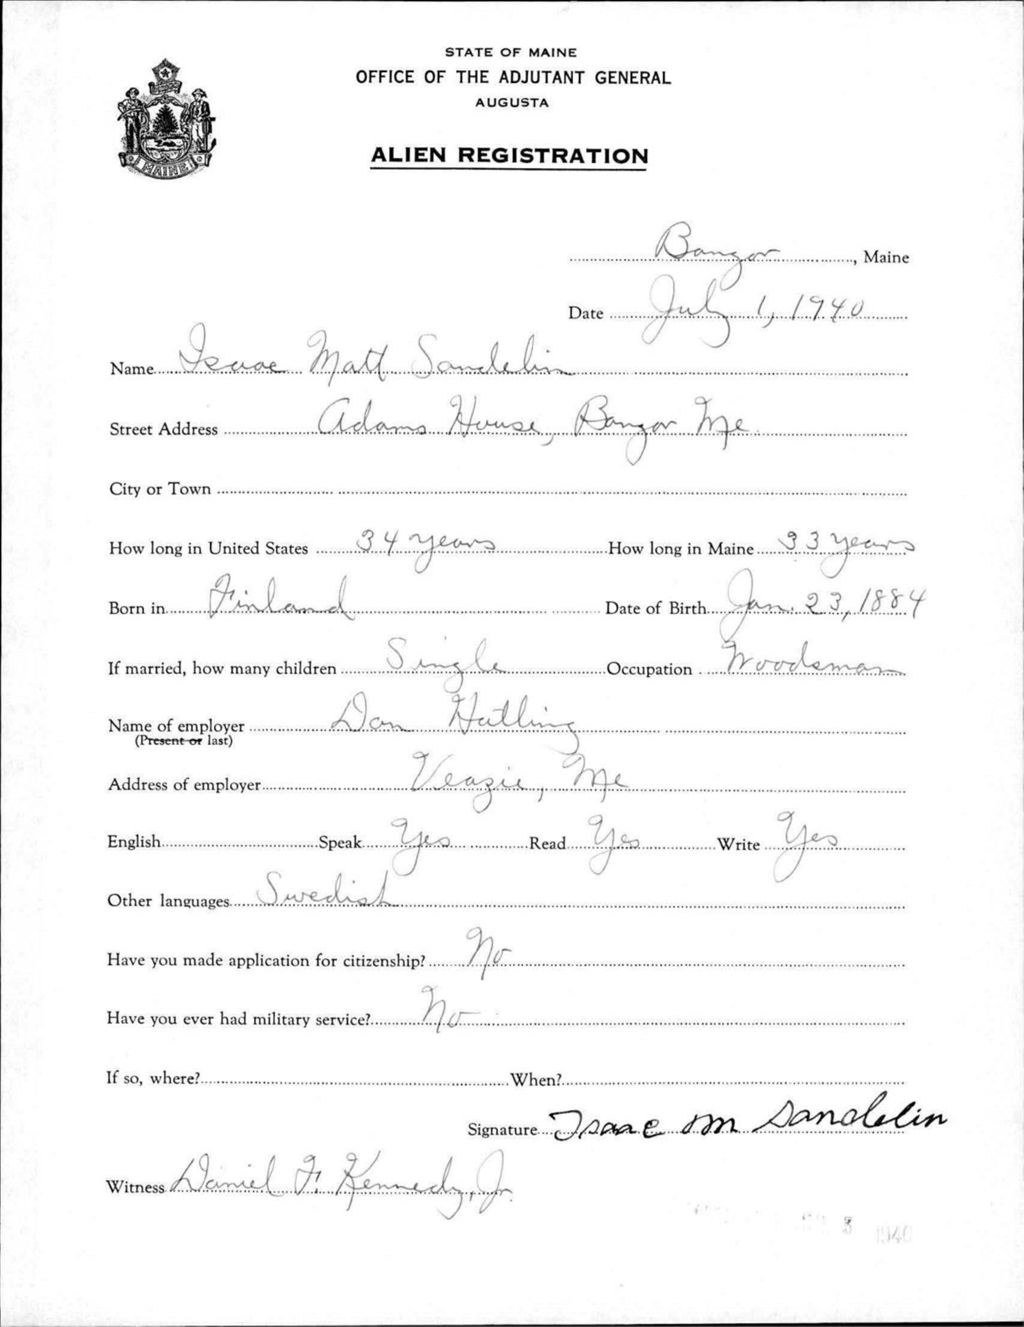 STATE OF MAINE
OFFICE OF THE ADJUTANT GENERAL
AUGUSTA
ALIEN REGISTRATION
MAINE
Bangor, Maine
Date July 1, 1940
Name Isaac Matt Sandelin
Street Address Adams House, Bangor Me
City or Town
How long in United States 34 years How long in Maine 33 years
Born in Finland Date of Birth Jan. 23, 1884
If married, how many children Single Occupation Woodsman
Name of employer Dan
(Present or last)
Address of employer Veazie, Me
English Speak Yes Read Yes Write Yes
Other languages Swedish
Have you made application for citizenship? No
Have you ever had military service? No
If so, where? When?
Signature Isaac M Sandelin
Witness Daniel F. Kennedy, Jr.
3 1940